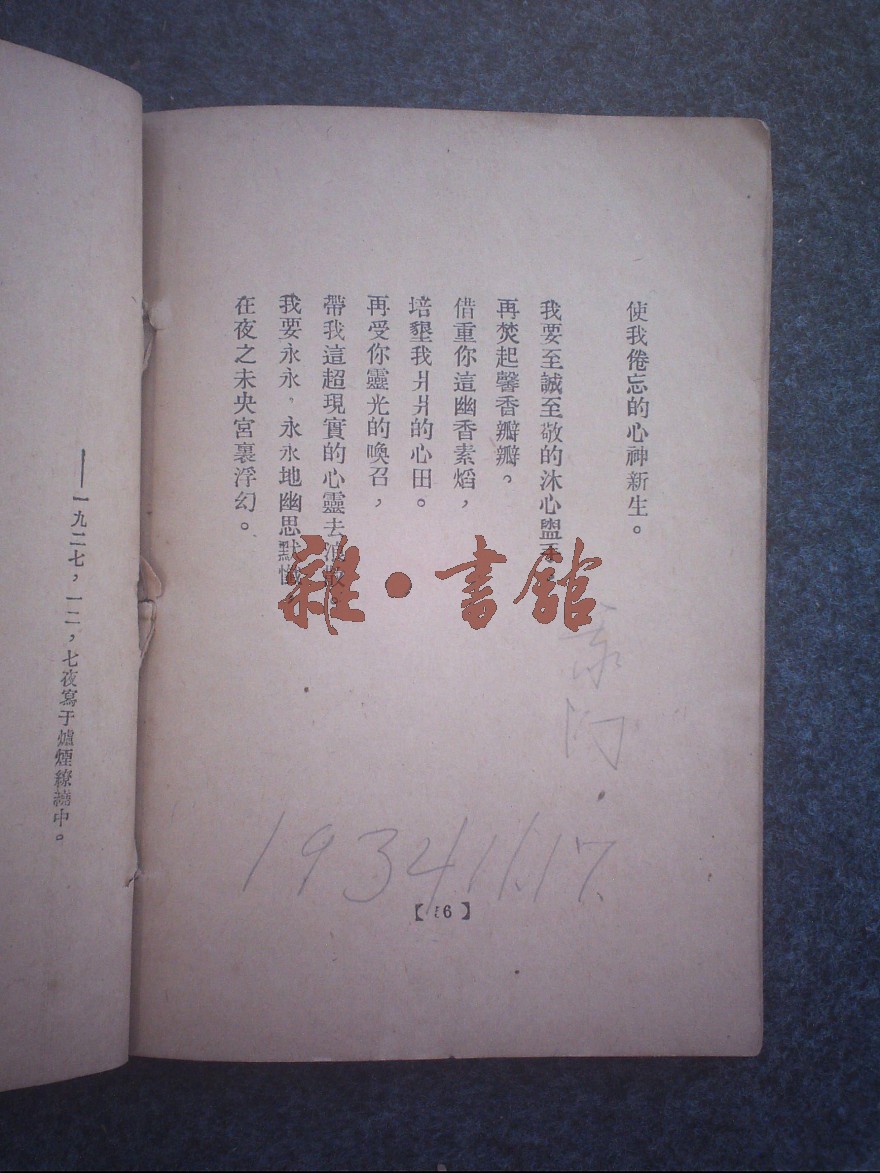 使我倦忘的心神新生。
我要至誠至敬的沐心盥手，
再焚起馨香瓣瓣。
借重你這幽香素熖，
培墾我爿爿的心田。
再受你靈光的喚召，
帶我這超現實的心靈去
我要永永，永永地幽思默
在夜之未央宮裏浮幻。
——一九二七，一二，七夜寫于爐煙繚繞中。
雜·書館
1934 11.17.
【 6】